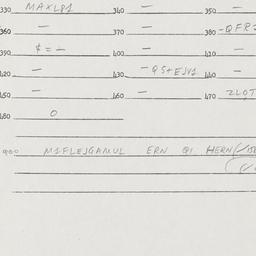 330 MAXL81 340 — 350 —
360 — 370 — 380 -QFR
390 $=- 400 — 410 —
420 — 430 -QS+EJV1 440 —
450 — 460 — 470 2LOT
480 0
900 M1FLEJGAMUL ERN Q1 HERN